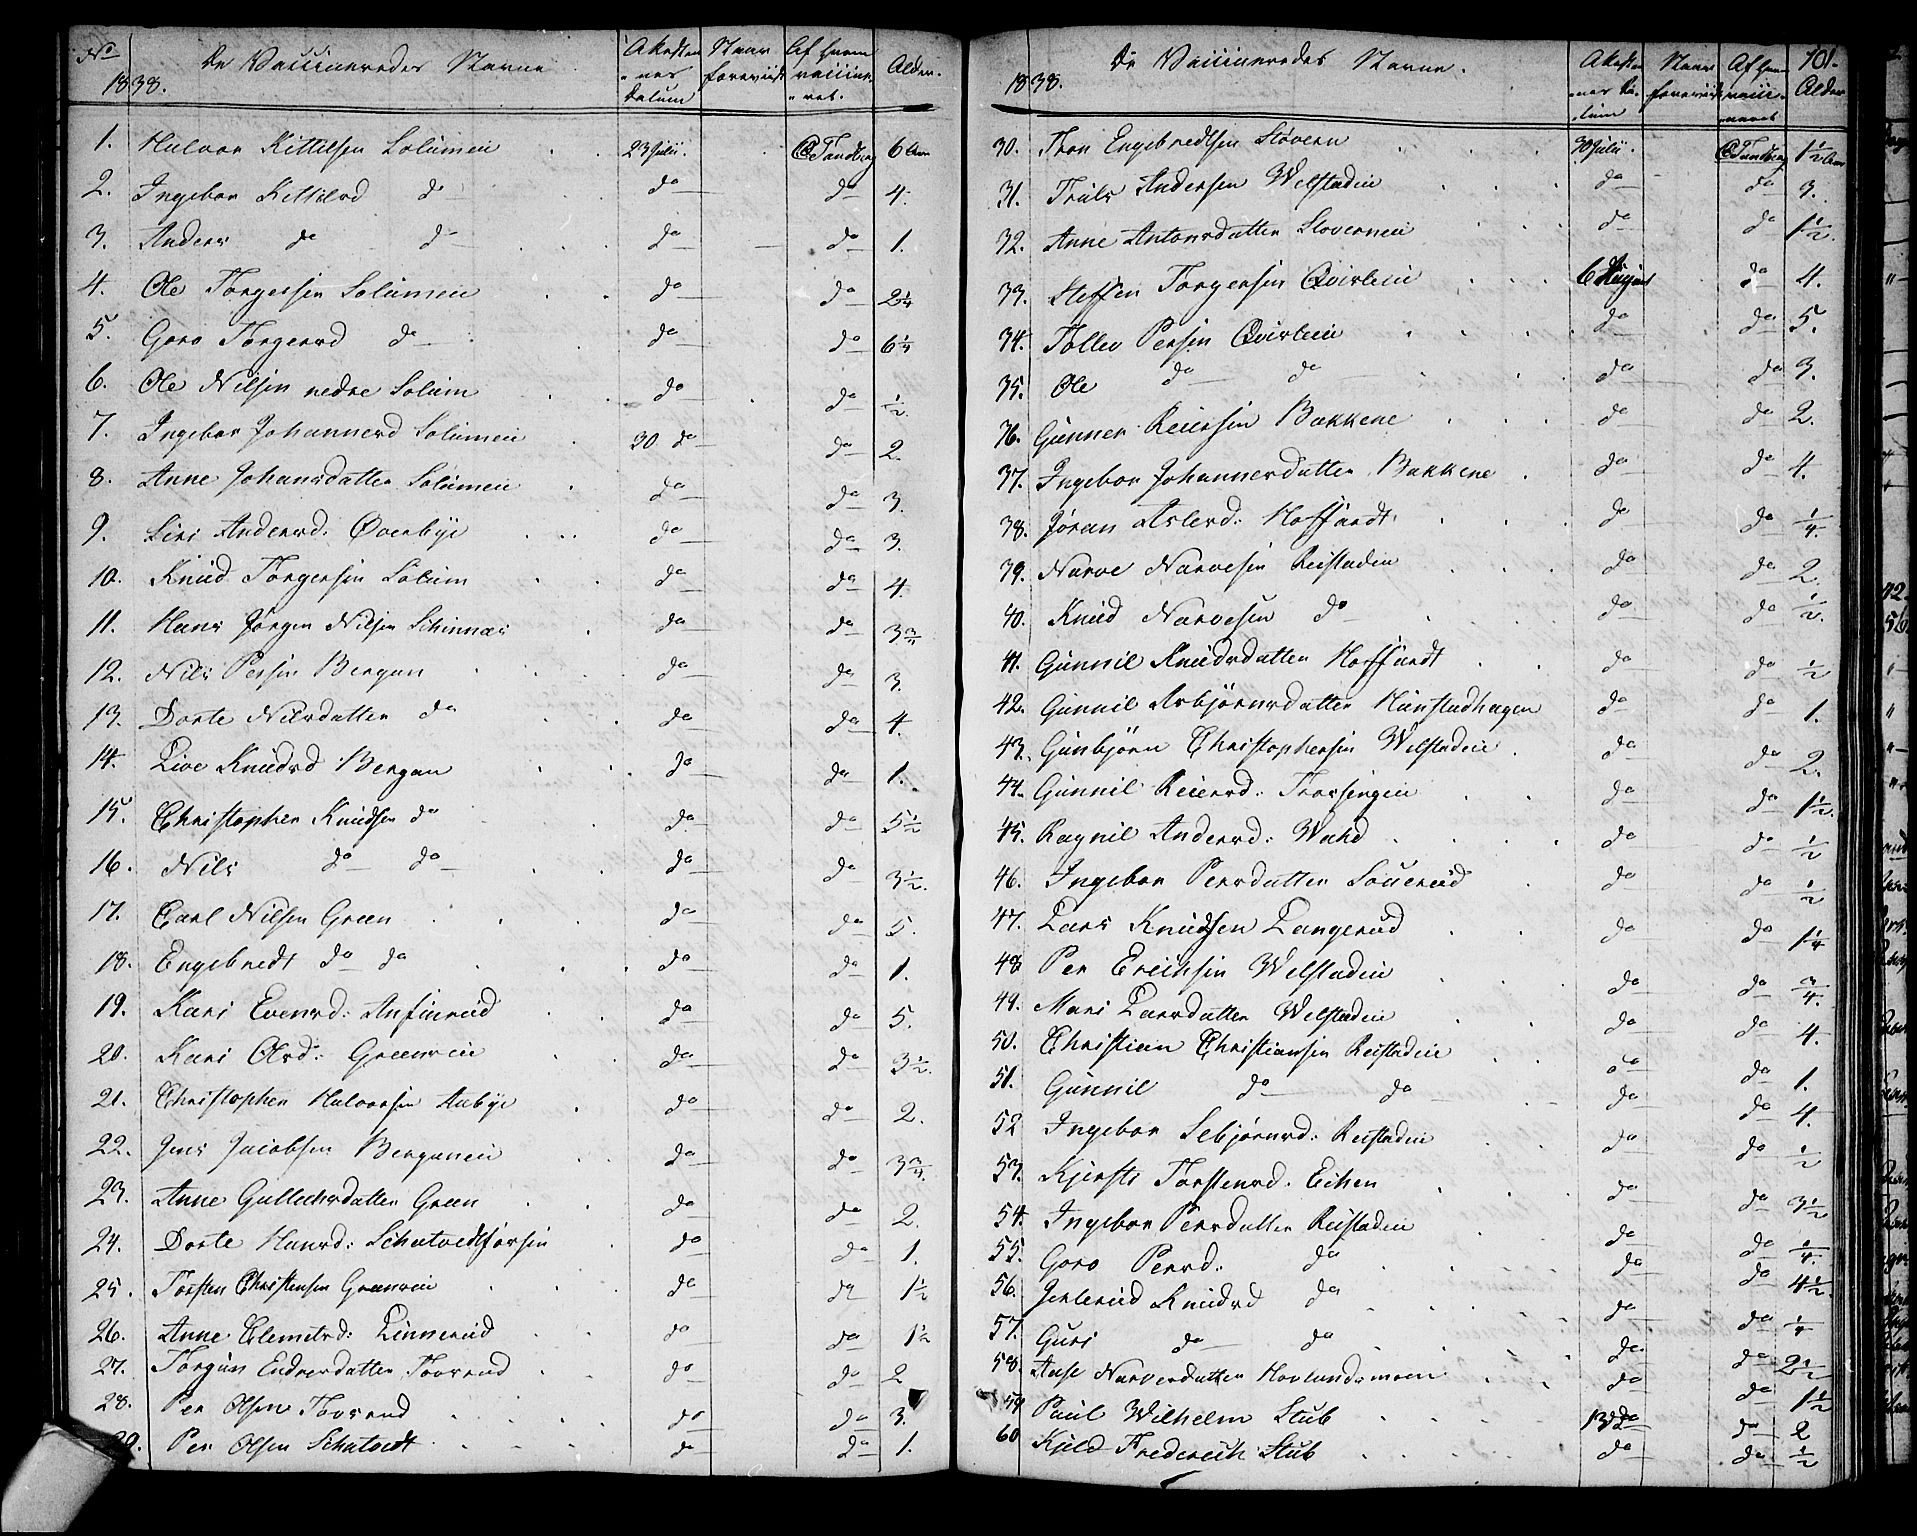 No De Vaccineredes Navne Attesternes Datum Naar forevist Af hvem vaccineret. Alder.
1838.
1. Halvor Kittilsen Solumeie 23 Julii. C Tandberg 6 Aar
2. Ingebor Kittilsd do do do 4.
3. Anders do do do do 1.
4. Ole Torgersen Solumeie do do 2¼
5. Goro Torgersd do do do 6¼
6. Ole Nilsen nedre Solum do do ½.
7. Ingebor Johannesd Solumeie 30 do do 2.
8. Anne Johansdatter Solumeie do do 3.
9. Siri Andersd: Øverbye do do 3.
10. Knud Torgersen Solum do do 4.
11. Hans Jørgen Nilsen Schinnæs do do 3¾
12. Nils Persen Bergan do do 3.
13. Dorte Nilsdatter do do do 4.
14. Live Knudsd Bergan do do 1.
15. Christopher Knudsen do do do 5½
16. Nils do do do do 3½.
17. Carl Nilsen Green do do 5.
18. Engebredt do do do do 1.
19. Kari Evensd: Anfinrud do do 5.
20. Kari Olsd: Greenseie do do 3½.
21. Christopher Halvorsen Aabye do do 2.
22. Jens Jacobsen Berganeie do do 3¾.
23. Anne Gullechsdatter Green do do 2.
24. Dorte Hansd: Schatvedtforsen do do 1.
25. Torsten Christensen Greenseie do do 1½
26. Anne Clemetsd: Linnerud do do 1½
27. Torgun Endresdatter Tovsrud do do 2
28. Per Olsen Tovsrud do do 3.
29. Per Olsen Schatvedt do do 1.
De Vaccineredes Navne. Attesternes Datum Naar forevist Af hvem vaccineret 101. Alder
1838.
30. Thor Engebredtsen Støvern 30 Julii. C Tandberg 1½ Aar
31. Truls Andersen Welstadeie do do 3.
32. Anne Antonsdatter Stoverneie do do 1½.
33. Steffen Torgersen Qvisleeie 6 August do 4.
34. Tollev Persen Qvisleeie do do 5.
35. Ole do do do do 3.
36. Gunner Reiersen Bakkene do do 2.
37. Ingebor Johannesdatter Bakkene do do 4.
38. Jøran Aslesd: Hoffardt do do ¼.
39. Narve Narvesen Reistadeie do do 2.
40. Knud Narvesen do do do ½.
41. Gunnil Knudsdatter Hoffardt do do ½
42. Gunnil Asbjørnsdatter Hunstadhagen do do 1.
43. Gunbjørn Christophersen Welstadeie do do 2.
44. Gunnil Reiersd: Trossingeie do do 1½.
45. Ragnil Andersd: Wahd do do ½
46. Ingebor Persdatter Souerud do do ½
47. Lars Knudsen Langerud do do 1¼
48 Per Erichsen Welstadeie do do ¾.
49. Mari Larsdatter Welstadeie do do 4.
50. Christian Christiansen Reistadeie do do 1.
51. Gunnil do do do do 4.
52 Ingebor Sebjørnsd: Reistadeie do do ½
53. Kjersti Torstensd. Eichen do do 3½
54. Ingebor Persdatter Reistadeie do do ¼.
55. Goro Persd: do do do 4½.
56. Jertrud Knudsd do do do ¼
57. Guri do do do do 2½
58. Aase Narvesdatter Hovlandsmoen do do 1½
59 Paul Wilhelm Stub 13 do do 2
60 Kjeld Frederich Stub do do ½